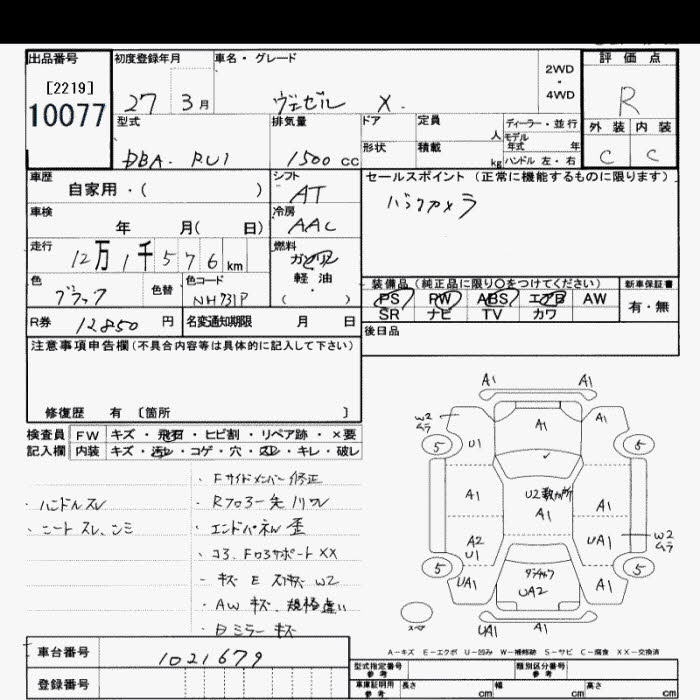 出品番号 初度登録年月 車名・グレード 評価点
[2219] 2WD・4WD
10077 27 3月 ヴェゼル X. R
外装 内装
C C
型式 排気量 ドア 定員 人 ディーラー・並行
モデル年式 年
DBA- RU1 1500cc 形状 積載 kg ハンドル 左・右
車歴 シフト セールスポイント (正常に機能するものに限ります)
自家用・( ) AT バックカメラ
車検 冷房
年 月( 日) AAC
走行 燃料
12万1千576km ガソリン
軽油・( )
色 色替 色コード 装備品(純正品に限り○をつけてください) 新車保証書
ブラック NH731P PS PW ABS エアB AW 有・無
SR ナビ TV カワ
R券 12850円 名変通知期限 月 日 後日品
注意事項申告欄(不具合内容等は具体的に記入して下さい)
修復歴 有 〔箇所 〕
検査員 FW キズ・飛石・ヒビ割・リペア跡・×要
記入欄 内装 キズ・汚レ・コゲ・穴・スレ・キレ・破レ
・ハンドルスレ
・シートスレ、シミ
・Fサイドメンバー修正
・エンドパネル歪
・コア、FロアサポートXX
・キズ E W2
・AWキズ、規格違い
・ミラーキズ
A1 A1
W2 ムラ A1 A1
5 U1 5
A1 U2数カ所 A1
A1
A2 U1 UA1 W2 ムラ
5 5
UA1 UA2 A1
スペア UA1 A1
A-キズ E-エクボ U-凹み W-補修跡 S-サビ C-腐食 XX-交換済
車台番号 1021679
登録番号
型式指定番号 参考 類別区分番号 参考
車庫証明用 参考 長さ cm 幅 cm 高さ cm